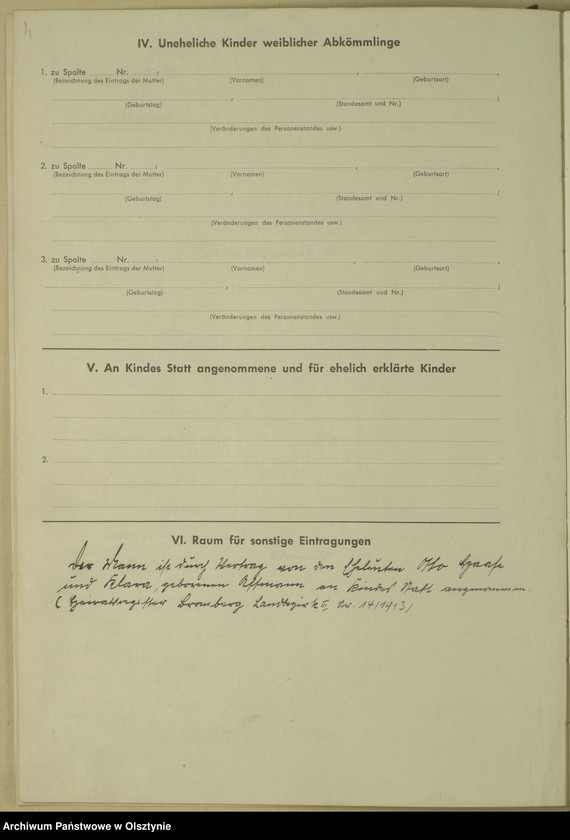 IV. Uneheliche Kinder weiblicher Abkömmlinge
1. zu Spalte Nr. : , ,
(Bezeichnung des Eintrags der Mutter) (Vornamen) (Geburtsort)
, ;
(Geburtstag) (Standesamt und Nr.)
(Veränderungen des Personenstandes usw.)
2. zu Spalte Nr. : , ,
(Bezeichnung des Eintrags der Mutter) (Vornamen) (Geburtsort)
, ;
(Geburtstag) (Standesamt und Nr.)
(Veränderungen des Personenstandes usw.)
3. zu Spalte Nr. : , ,
(Bezeichnung des Eintrags der Mutter) (Vornamen) (Geburtsort)
, ;
(Geburtstag) (Standesamt und Nr.)
(Veränderungen des Personenstandes usw.)
V. An Kindes Statt angenommene und für ehelich erklärte Kinder
1.
2.
VI. Raum für sonstige Eintragungen
Der Mann ist durch Vertrag von den Eheleuten Otto Haase
und Klara, geborenen Assmann an Kindes Statt angenommen.
(Heiratsregister Bromberg Landbezirk II, Nr. 14/1913)
Archiwum Państwowe w Olsztynie